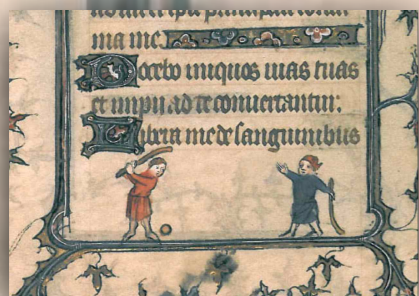 ma me.
Docebo iniquos uias tuas
et impii ad te conuertantur:
Libera me de sanguinibus